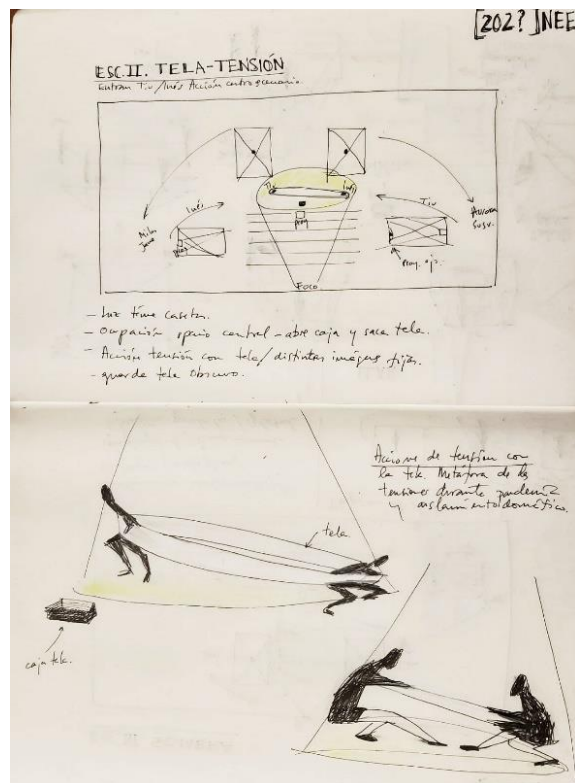 [202? ]NEE
ESC.II. TELA-TENSIÓN
Entran Tiv/Inés Acción centro escenario.
Inés
Tiv
Aurora
Susv.
Foco
- Luz tenue casetas.
- Ocupación spacio central - abre caja y saca tela.
- Acción tensión con tela/distintas imágenes fijas.
- guarda tela Obscuro.
Acciones de tensión con
la tela. Metáfora de las
tensiones durante pandemia
y aislamiento doméstico.
tela
caja tela.